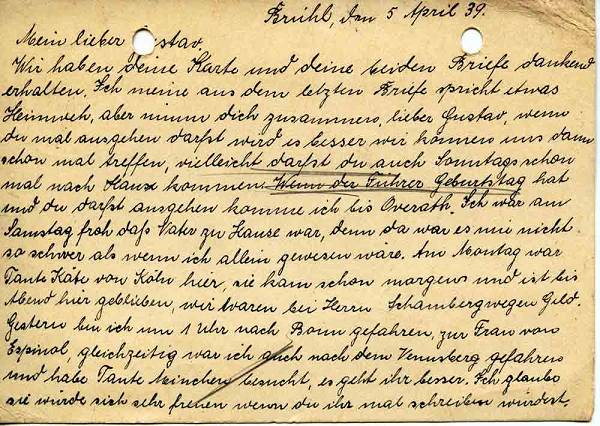 Brühl, den 5 April 39.
Mein lieber Gustav.
Wir haben deine Karte und deine beiden Briefe dankend
erhalten. Ich meine aus dem letzten Briefe spricht etwas
Heimweh, aber nimm dich zusammen, lieber Gustav, wenn
du mal ausgehen darfst wird es besser wir können uns dann
schon mal treffen, vielleicht darfst du auch Sonntags schon
mal nach Hause kommen. Wenn der Führer Geburtstag hat
und du darfst ausgehen komme ich bis Overath. Ich war am
Samstag froh daß Vater zu Hause war, denn da war es mir nicht
so schwer als wenn ich allein gewesen wäre. Am Montag war
Tante Käte von Köln hier, sie kam schon morgens und ist bis
Abend hier geblieben, wir waren bei Herrn Schamberg wegen Geld.
Gestern bin ich um 1 Uhr nach Bonn gefahren, zur Frau von
Espinol, gleichzeitig war ich auch nach dem Venusberg gefahren
und habe Tante Minchen besucht, es geht ihr besser. Ich glaube
sie würde sich sehr freuen wenn du ihr mal schreiben würdest.